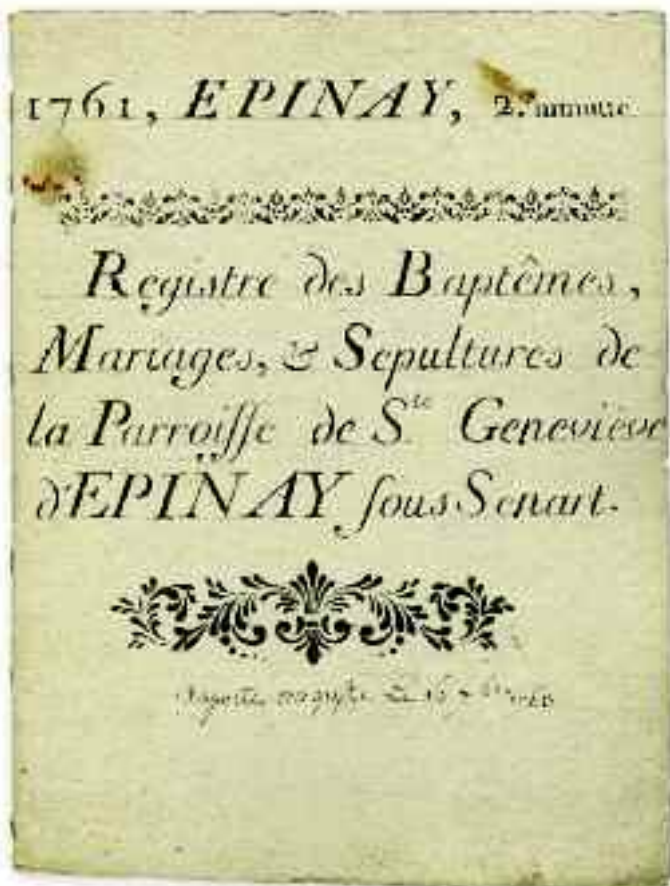 1761, EPINAY, 2.e minutte
Registre des Baptêmes,
Mariages, & Sepultures de
la Parroiſſe de S.te Geneviève
d'EPINAY ſous Senart.